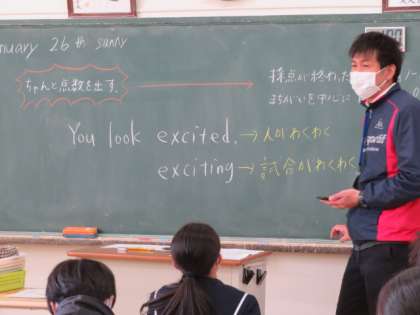 nuary 26th sunny
ちゃんと点数を出す。
採点が終わった
まちがいを中心に
You look excited. → 人がわくわく
exciting → 試合がわくわく